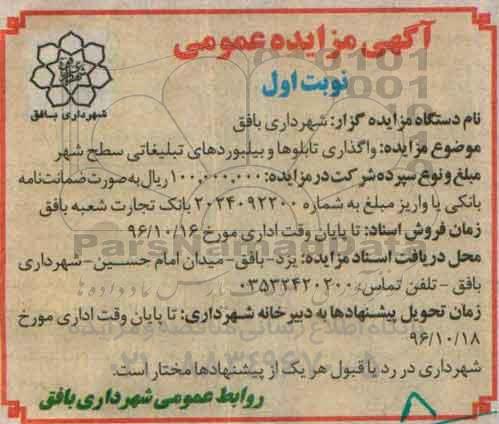 آگهی مزایده عمومی
نوبت اول
شهرداری بافق
نام دستگاه مزایده گزار: شهرداری بافق
موضوع مزایده: واگذاری تابلوها و بیلبوردهای تبلیغاتی سطح شهر
مبلغ و نوع سپرده شرکت در مزایده: ۱۰۰,۰۰۰,۰۰۰ ریال به صورت ضمانت نامه
بانکی یا واریز مبلغ به شماره ۲۰۲۴۰۹۲۲۰۰ بانک تجارت شعبه بافق
زمان فروش اسناد: تا پایان وقت اداری مورخ ۹۶/۱۰/۱۶
محل دریافت اسناد مزایده: یزد-بافق-میدان امام حسین-شهرداری
بافق - تلفن تماس: ۰۳۵۳۲۴۲۰۲۰۰
زمان تحویل پیشنهادها به دبیرخانه شهرداری: تا پایان وقت اداری مورخ
۹۶/۱۰/۱۸
شهرداری در رد یا قبول هر یک از پیشنهادها مختار است.
روابط عمومی شهرداری بافق
ParsNamadData